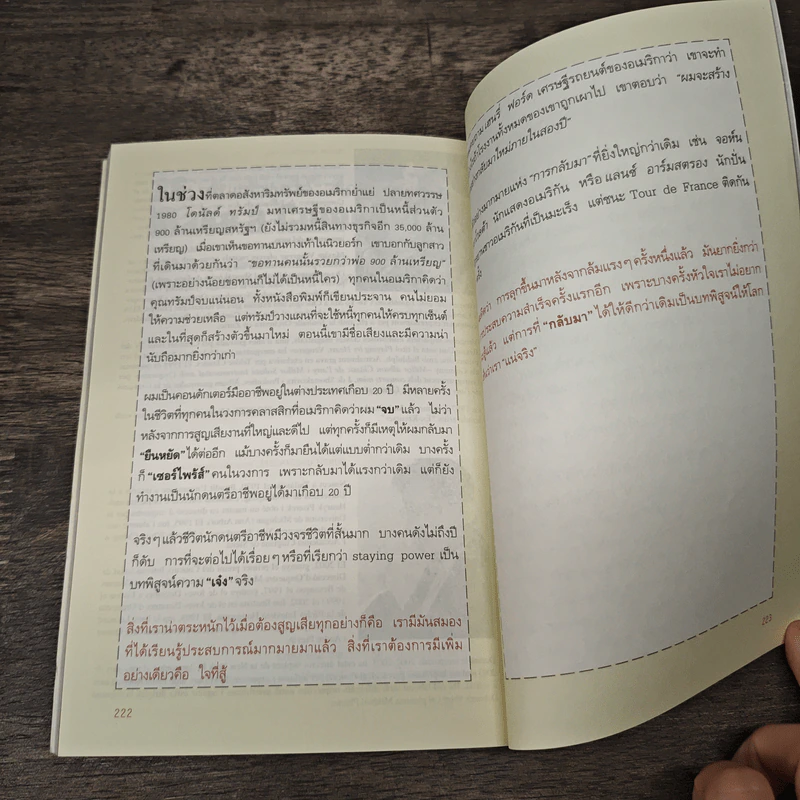 ในช่วงที่ตลาดอสังหาริมทรัพย์ของอเมริกาย่ำแย่ ปลายทศวรรษ
1980 โดนัลด์ ทรัมป์ มหาเศรษฐีของอเมริกาเป็นหนี้ส่วนตัว
900 ล้านเหรียญสหรัฐฯ (ยังไม่รวมหนี้สินทางธุรกิจอีก 35,000 ล้าน
เหรียญ) เมื่อเขาเห็นขอทานบนทางเท้าในนิวยอร์ก เขาบอกกับลูกสาว
ที่เดินมาด้วยกันว่า "ขอทานคนนั้นรวยกว่าพ่อ 900 ล้านเหรียญ"
(เพราะอย่างน้อยขอทานก็ไม่ได้เป็นหนี้ใคร) ทุกคนในอเมริกาคิดว่า
คุณทรัมป์จบแน่นอน ทั้งหนังสือพิมพ์ก็เขียนประจาน คนไม่ยอม
ให้ความช่วยเหลือ แต่ทรัมป์วางแผนที่จะใช้หนี้ทุกคนให้ครบทุกเซ็นต์
และในที่สุดก็สร้างตัวขึ้นมาใหม่ ตอนนี้เขามีชื่อเสียงและมีความน่า
นับถือมากยิ่งกว่าเก่า
ผมเป็นคอนดักเตอร์มืออาชีพอยู่ในต่างประเทศเกือบ 20 ปี มีหลายครั้ง
ในชีวิตที่ทุกคนในวงการคลาสสิกที่อเมริกาคิดว่าผม "จบ" แล้ว ไม่ว่า
หลังจากการสูญเสียงานที่ใหญ่และดีไป แต่ทุกครั้งก็มีเหตุให้ผมกลับมา
"ยืนหยัด" ได้ต่ออีก แม้บางครั้งก็มายืนได้แต่แบบต่ำกว่าเดิม บางครั้ง
ก็ "เซอร์ไพร้ส์" คนในวงการ เพราะกลับมาได้แรงกว่าเดิม แต่ก็ยัง
ทำงานเป็นนักดนตรีอาชีพอยู่ได้มาเกือบ 20 ปี
จริงๆ แล้วชีวิตนักดนตรีอาชีพมีวงจรชีวิตที่สั้นมาก บางคนดังไม่ถึงปี
ก็ดับ การที่จะต่อไปได้เรื่อยๆ หรือที่เรียกว่า staying power เป็น
บทพิสูจน์ความ "เจ๋ง" จริง
สิ่งที่เราน่าตระหนักไว้เมื่อต้องสูญเสียทุกอย่างก็คือ เรามีมันสมอง
ที่ได้เรียนรู้ประสบการณ์มากมายมาแล้ว สิ่งที่เราต้องการมีเพิ่ม
อย่างเดียวคือ ใจที่สู้
222
เฮนรี่ ฟอร์ด เศรษฐีรถยนต์ของอเมริกาว่า เขาจะทำ
โรงงานทั้งหมดของเขาถูกเผาไป เขาตอบว่า "ผมจะสร้าง
กลับมาใหม่ภายในสองปี"
มากมายแห่ง "การกลับมา" ที่ยิ่งใหญ่กว่าเดิม เช่น จอห์น
นักแสดงอเมริกัน หรือ แลนซ์ อาร์มสตรอง นักปั่น
ชาวอเมริกันที่เป็นมะเร็ง แต่ชนะ Tour de France ติดกัน
ว่า การลุกขึ้นมาหลังจากล้มแรงๆ ครั้งหนึ่งแล้ว มันยากยิ่งกว่า
ประสบความสำเร็จครั้งแรกอีก เพราะบางครั้งหัวใจเราไม่อยาก
สู้แล้ว แต่การที่ "กลับมา" ได้ให้ดีกว่าเดิมเป็นบทพิสูจน์ให้โลก
ว่าเรา "แน่จริง"
223